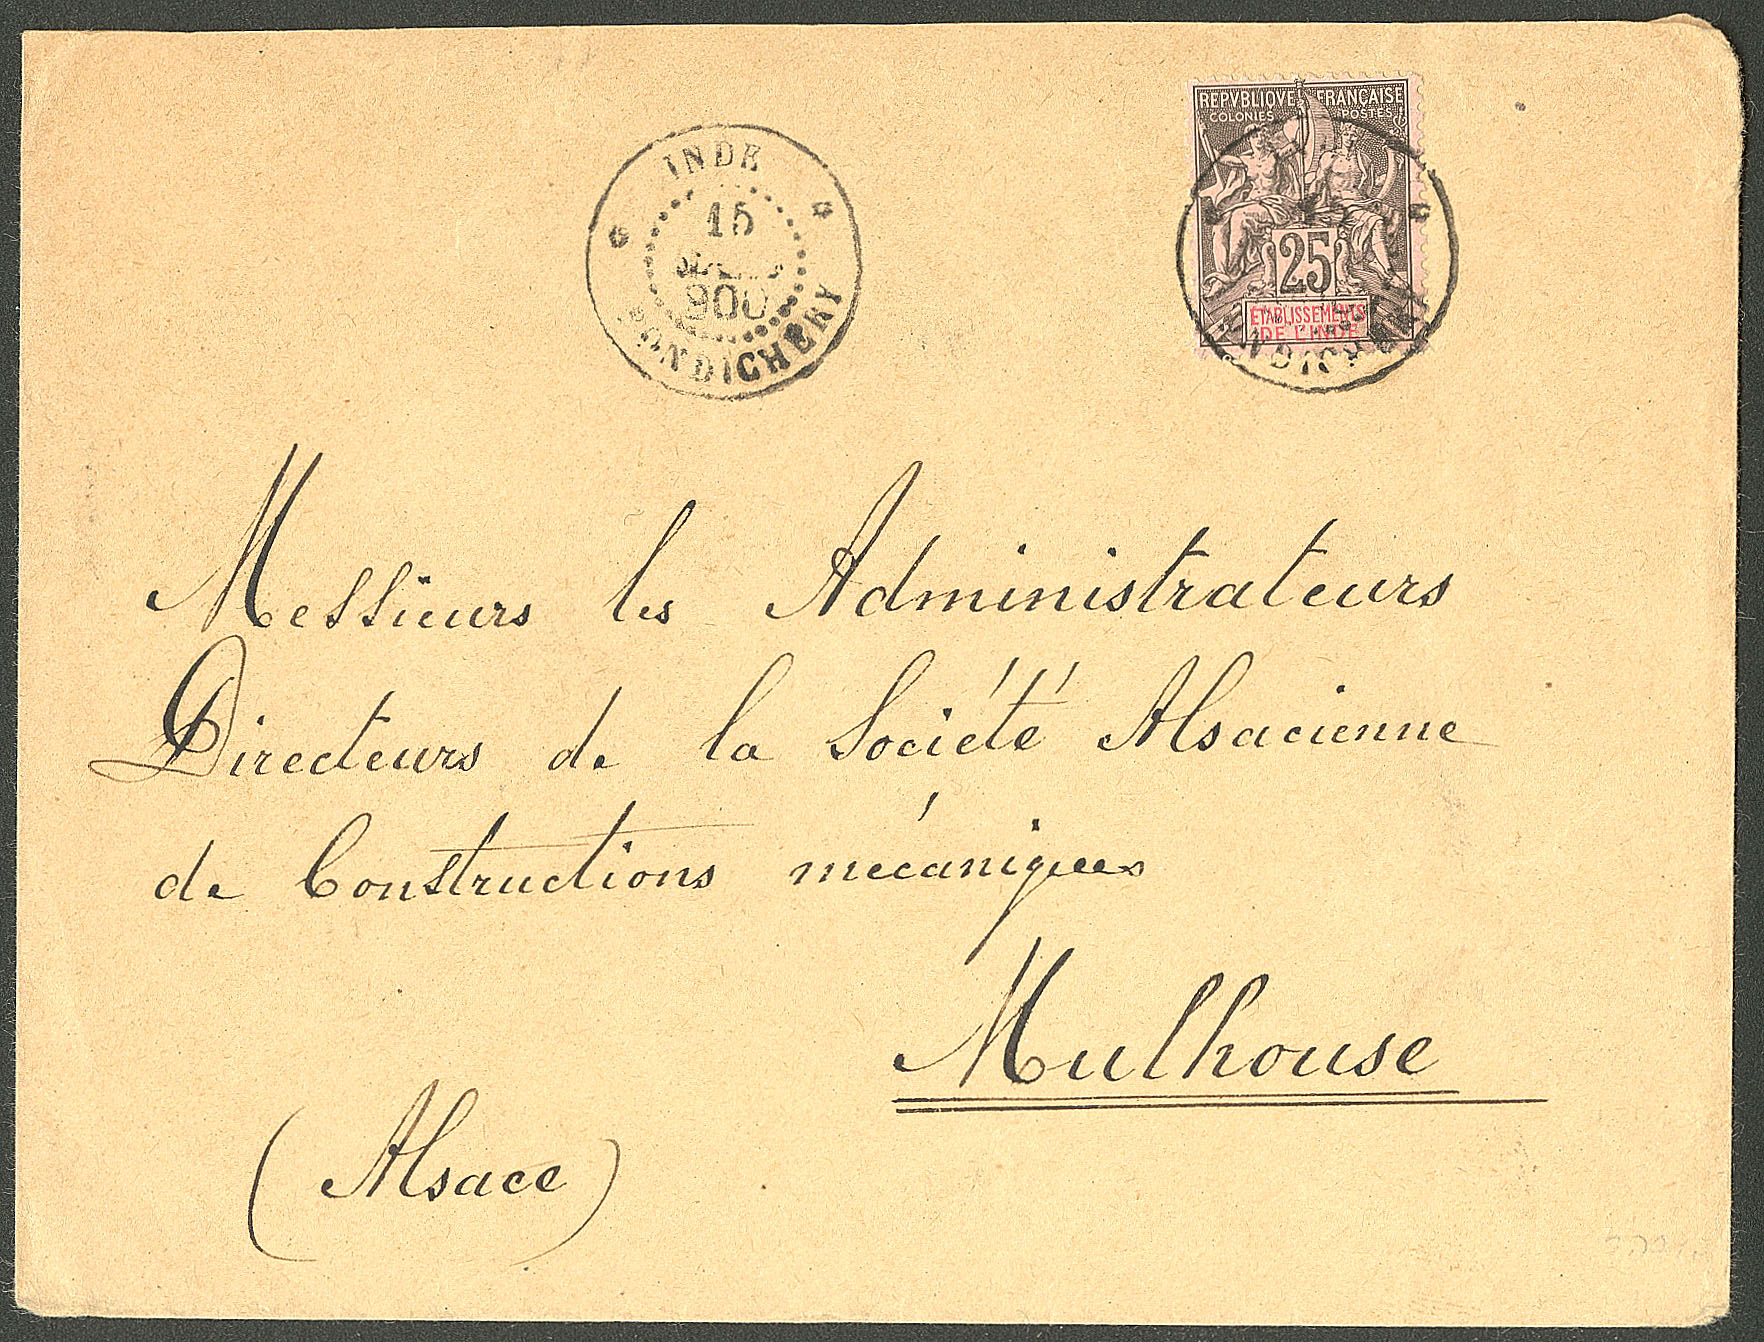 INDE
15
MARS
900
PONDICHERY
REPVBLIQVE FRANÇAISE
COLONIES POSTES
25
ETABLISSEMENTS
DE L'INDE
Messieurs les Administrateurs
Directeurs de la Société Alsacienne
de Constructions mécaniques
Mulhouse
(Alsace)